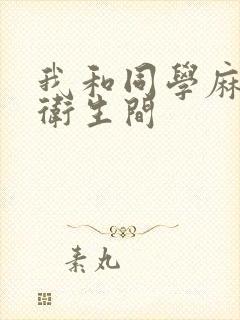 我和同學麻
衛生間
素丸